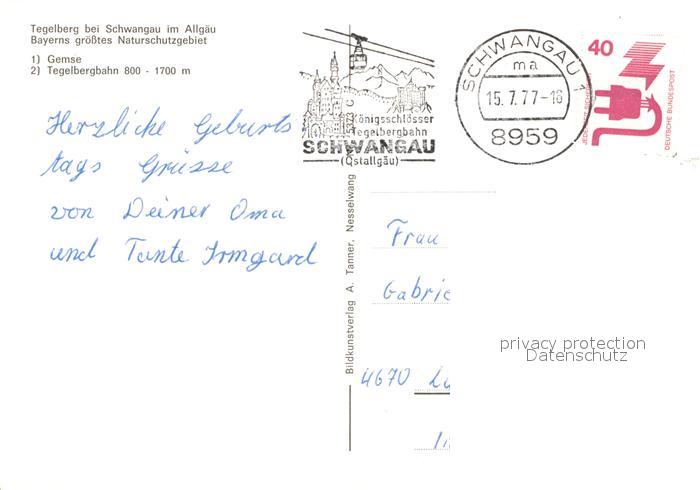 Tegelberg bei Schwangau im Allgäu
Bayerns größtes Naturschutzgebiet
1) Gemse
2) Tegelbergbahn 800 - 1700 m
Herzliche Geburts
tags Grüsse
von Deiner Oma
und Tante Irmgard
Königsschlösser
Tegelbergbahn
SCHWANGAU
(Ostallgäu)
SCHWANGAU 1
ma
15.7.77-16
8959
40
DEUTSCHE BUNDESPOST
Bildkunstverlag A. Tanner, Nesselwang
Frau
4670
privacy protection
Datenschutz